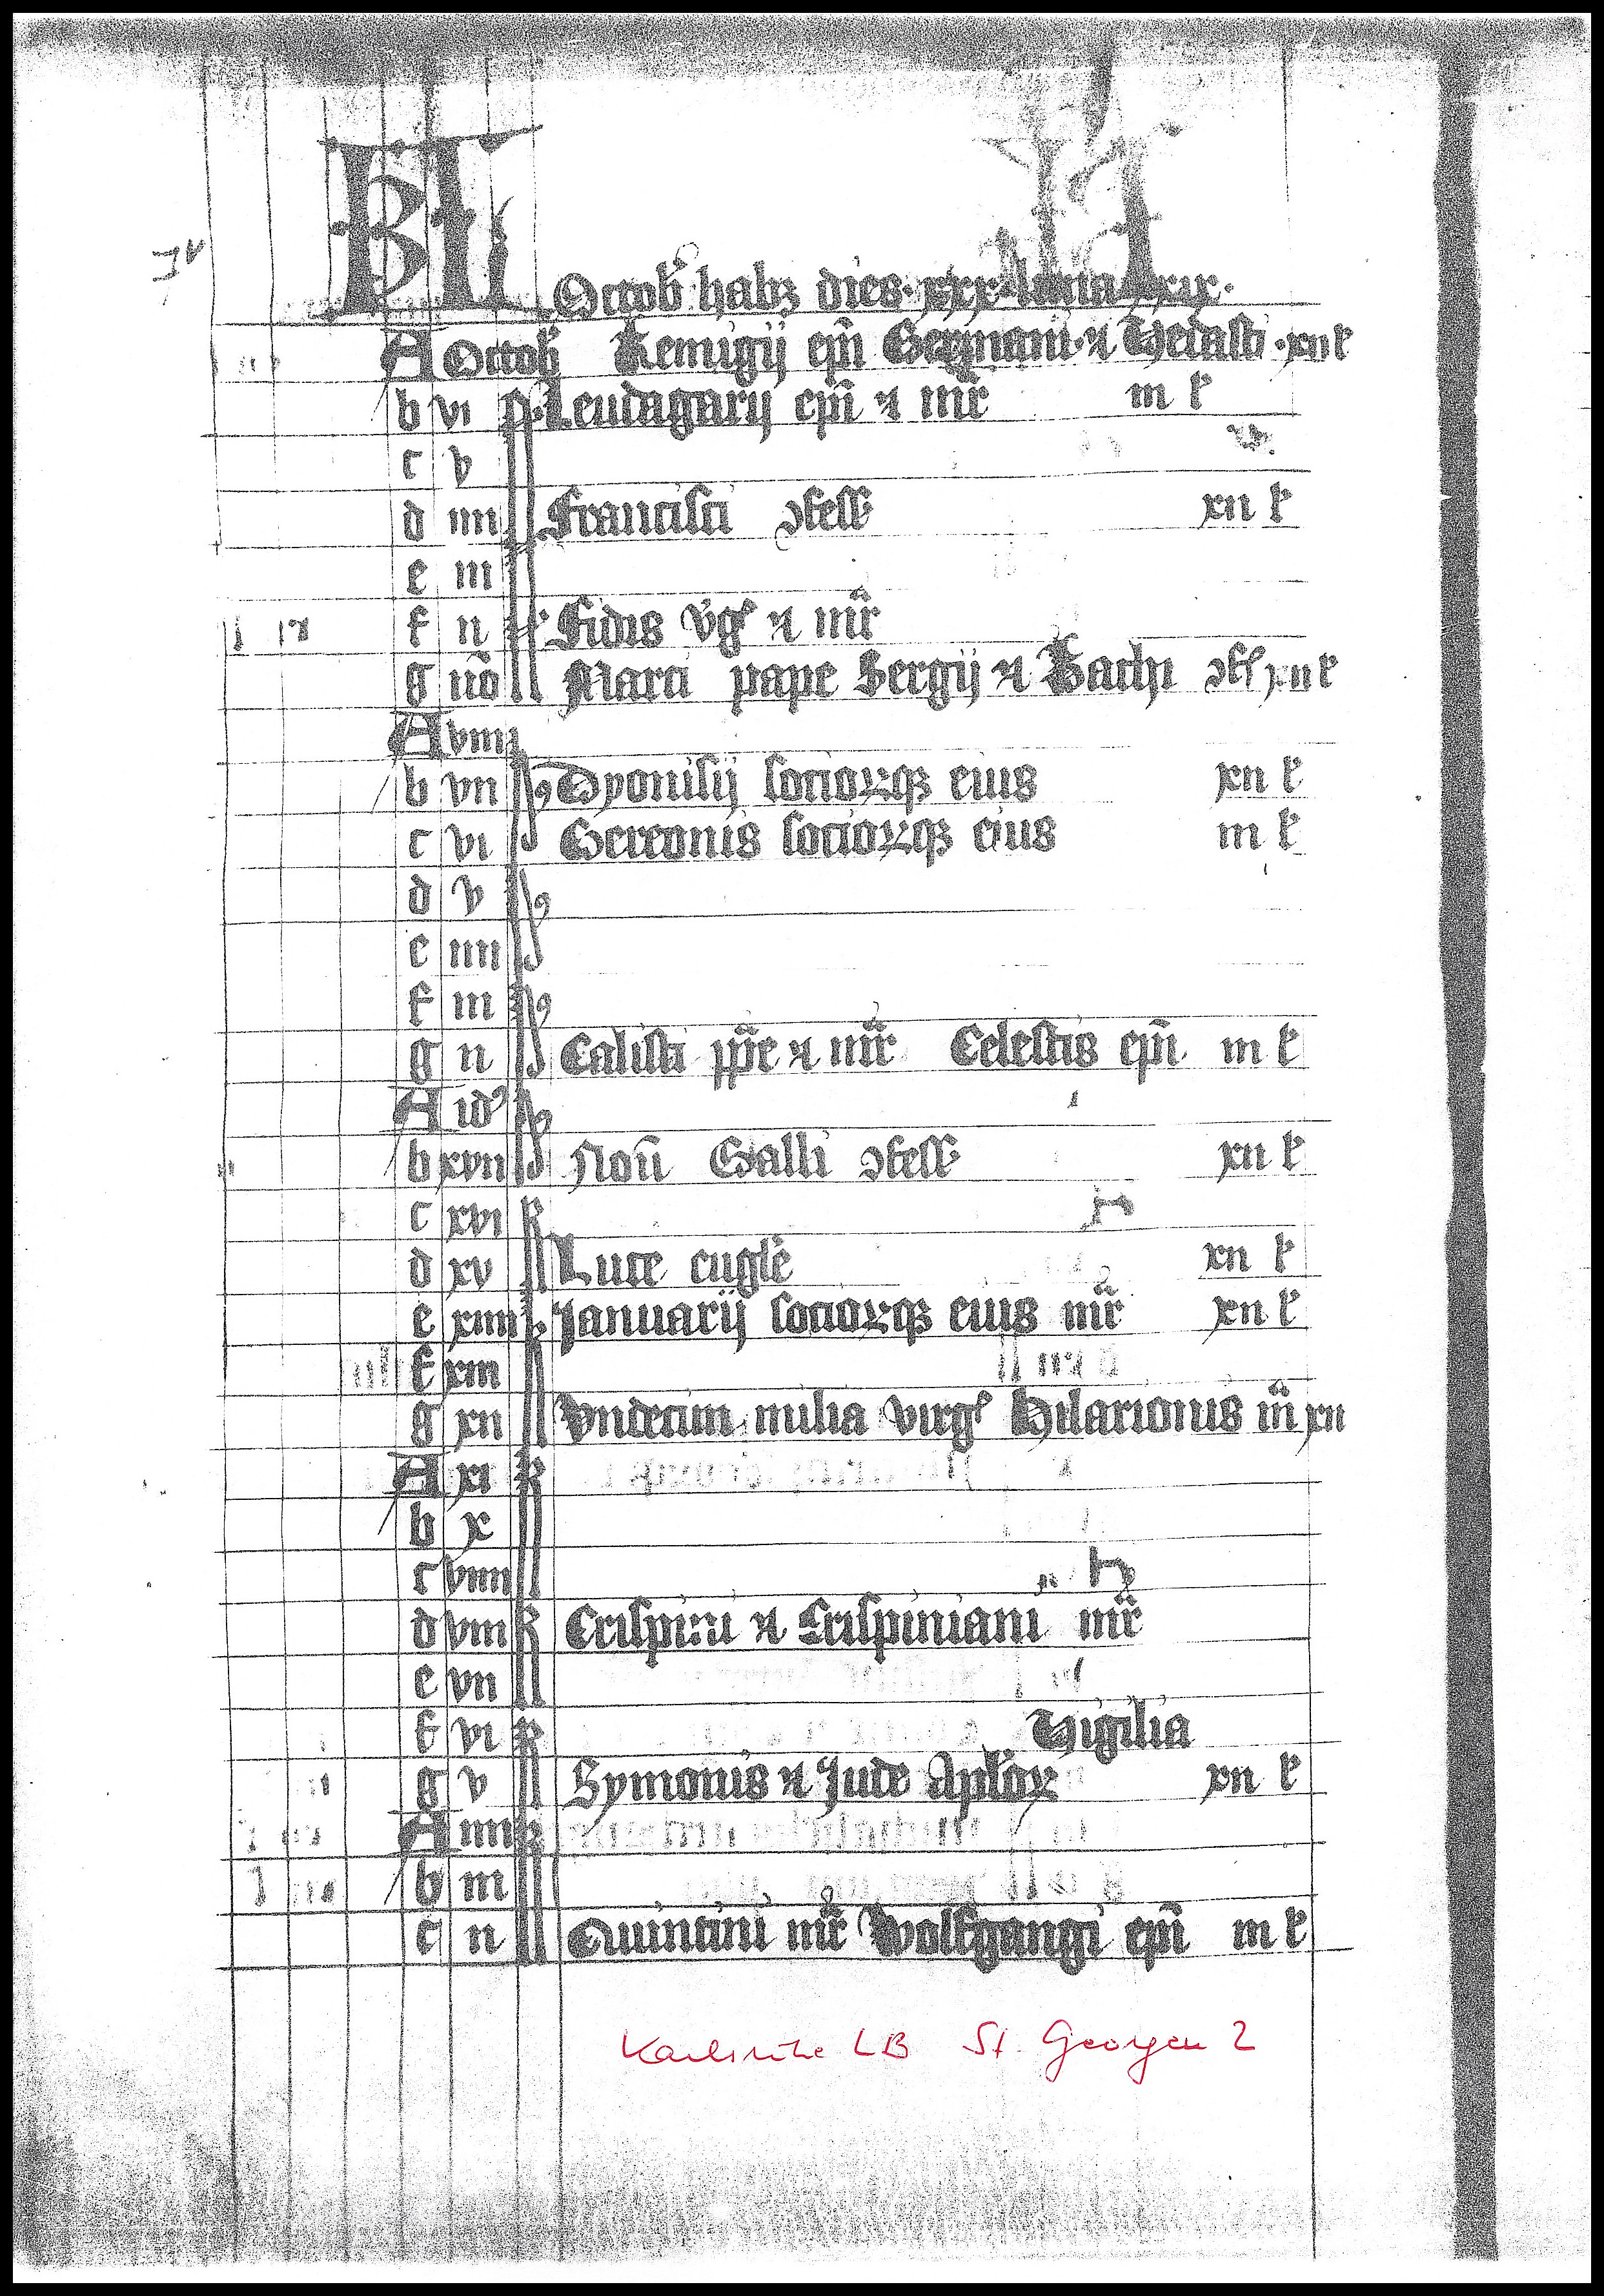 KL
Octob' habꝫ dies · xxx · luna xix ·
A Octob' Remigij ep̄i Germani · ⁊ Vedasti · xii l'
b vi N Leudagarij ep̄i ⁊ mr̄ iii l'
c v
d iiii Francisci ↄfess' xii l'
e iii
f ii Fidis v̓g' ⁊ mr̄
g nō Marci pape Sergij ⁊ Bachi xii l'
A viii
b vii Dyonisij socioꝝqꝫ eius xii l'
c vi Gereonis socioꝝqꝫ eius iii l'
d v
e iiii
f iii
g ii Calisti pp̄e ⁊ mr̄ Celestis ep̄i iii l'
A id'
b xvii Non̄ Galli ↄfess' xii l'
c xvi k
d xv Luce eugle xii l'
e xiiii Januarij socioꝝqꝫ eius mr̄ xii l'
f xiii
g xii Vndecim milia virg' Hilarionis m̄ xii
A xi k
b x
c viiii
d viii k Crispini ⁊ Crispiniani mr̄
e vii
f vi k Vigilia
g v Symonis ⁊ Jude Apl'oꝝ xii l'
A iiii k
b iii
c ii Quintini mr̄ Wolfgangi ep̄i iii l'
Karlsruhe LB St. Georgen 2